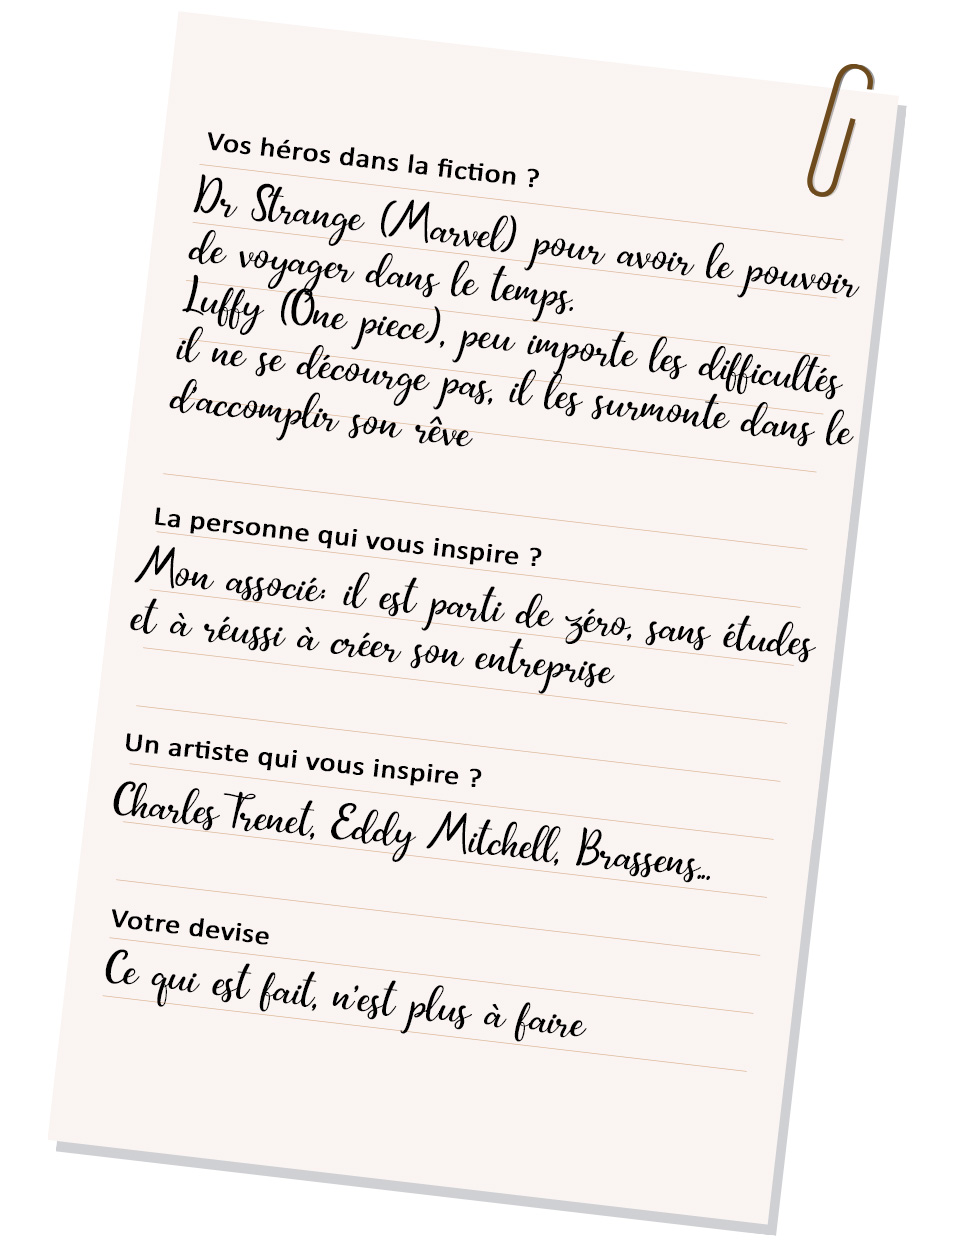 Vos héros dans la fiction ?
Dr Strange (Marvel) pour avoir le pouvoir
de voyager dans le temps.
Luffy (One piece), peu importe les difficultés
il ne se décourge pas, il les surmonte dans le
d'accomplir son rêve
La personne qui vous inspire ?
Mon associé: il est parti de zéro, sans études
et à réussi à créer son entreprise
Un artiste qui vous inspire ?
Charles Trenet, Eddy Mitchell, Brassens...
Votre devise
Ce qui est fait, n'est plus à faire